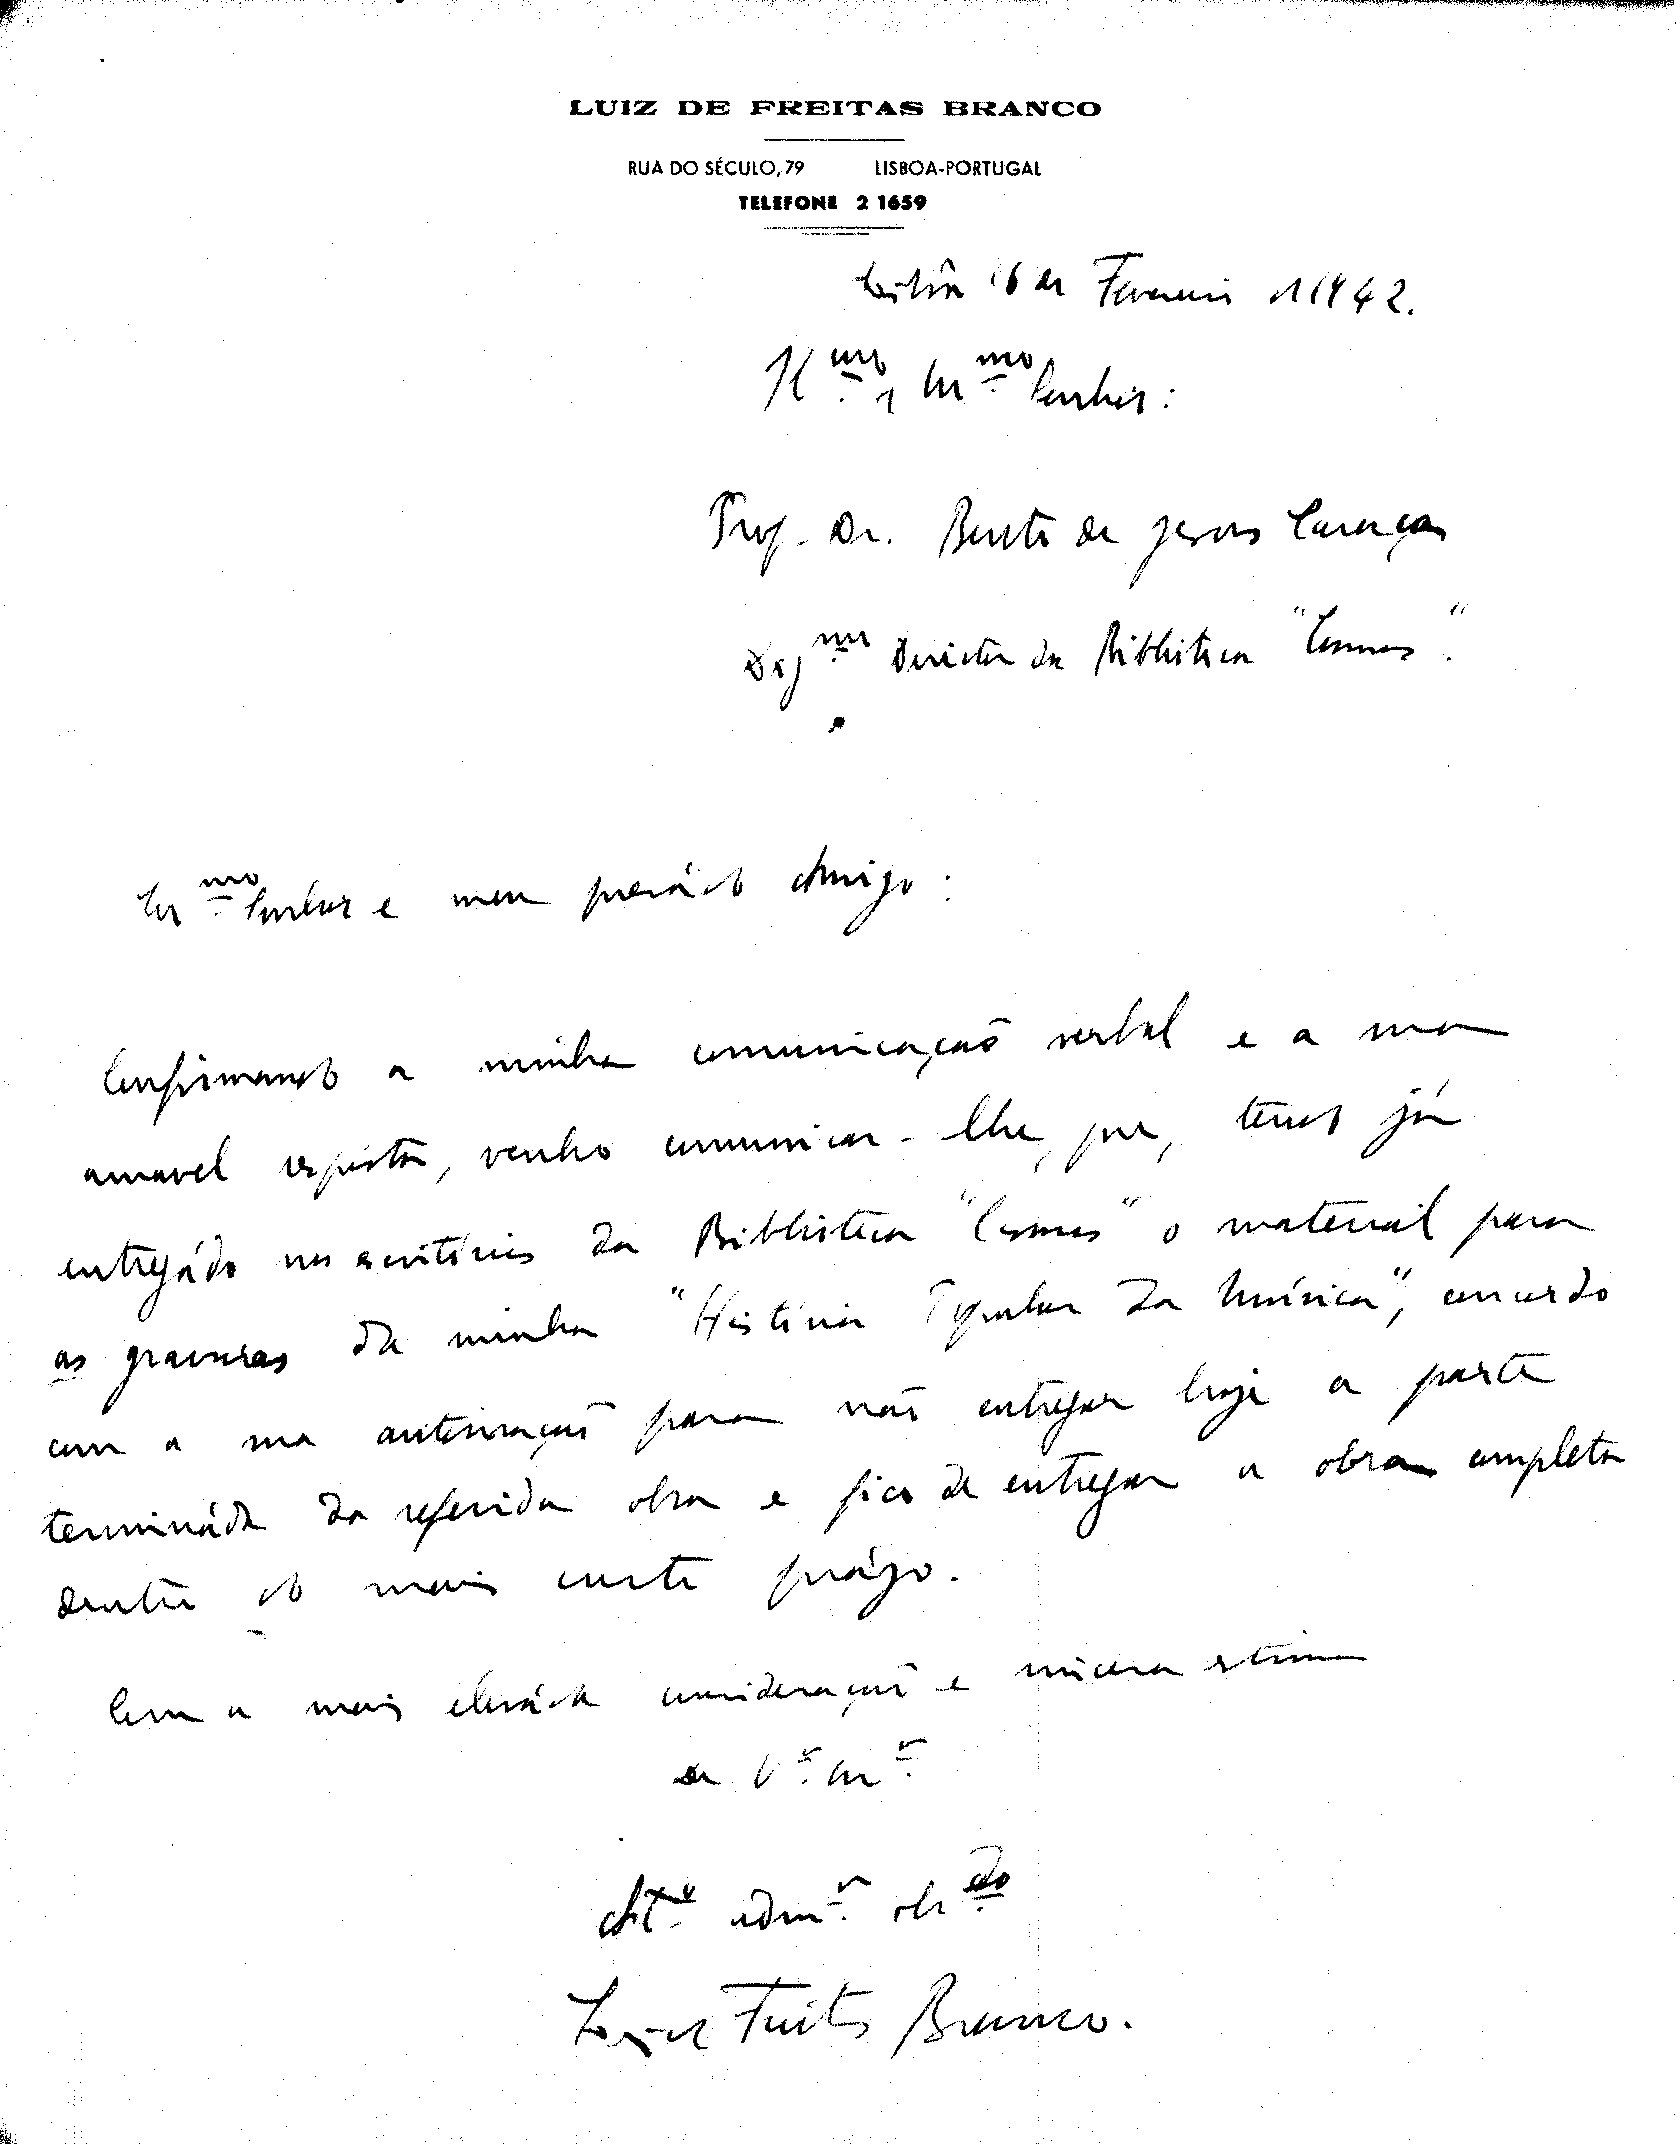 LUIZ DE FREITAS BRANCO
RUA DO SÉCULO, 79 LISBOA-PORTUGAL
TELEFONE 2 1659
Lisbôa 16 de Fevereiro de 1942.
Il.mo e Ex.mo Senhor:
Prof. Dr. Bento de Jesus Caraça
Dig.mo Director da Biblioteca "Cosmos".
Ex.mo Senhor e meu prezádo Amigo:
Confirmando a minha comunicação verbal e a sua
amavel resposta, venho comunicar-lhe, que, tendo já
entregádo nos escritórios da Biblioteca "Cosmos" o material para
as gravuras da minha "História Popular da Música", concordo
com a sua autorisação para não entregar hoje a parte
termináda da referida obra e fico de entregar a obra completa
dentro do mais curto prázo.
Com a mais eleváda consideração e sincera estima
de V.ª Ex.ª
At.º adm.or ob.do
Luiz de Freitas Branco.